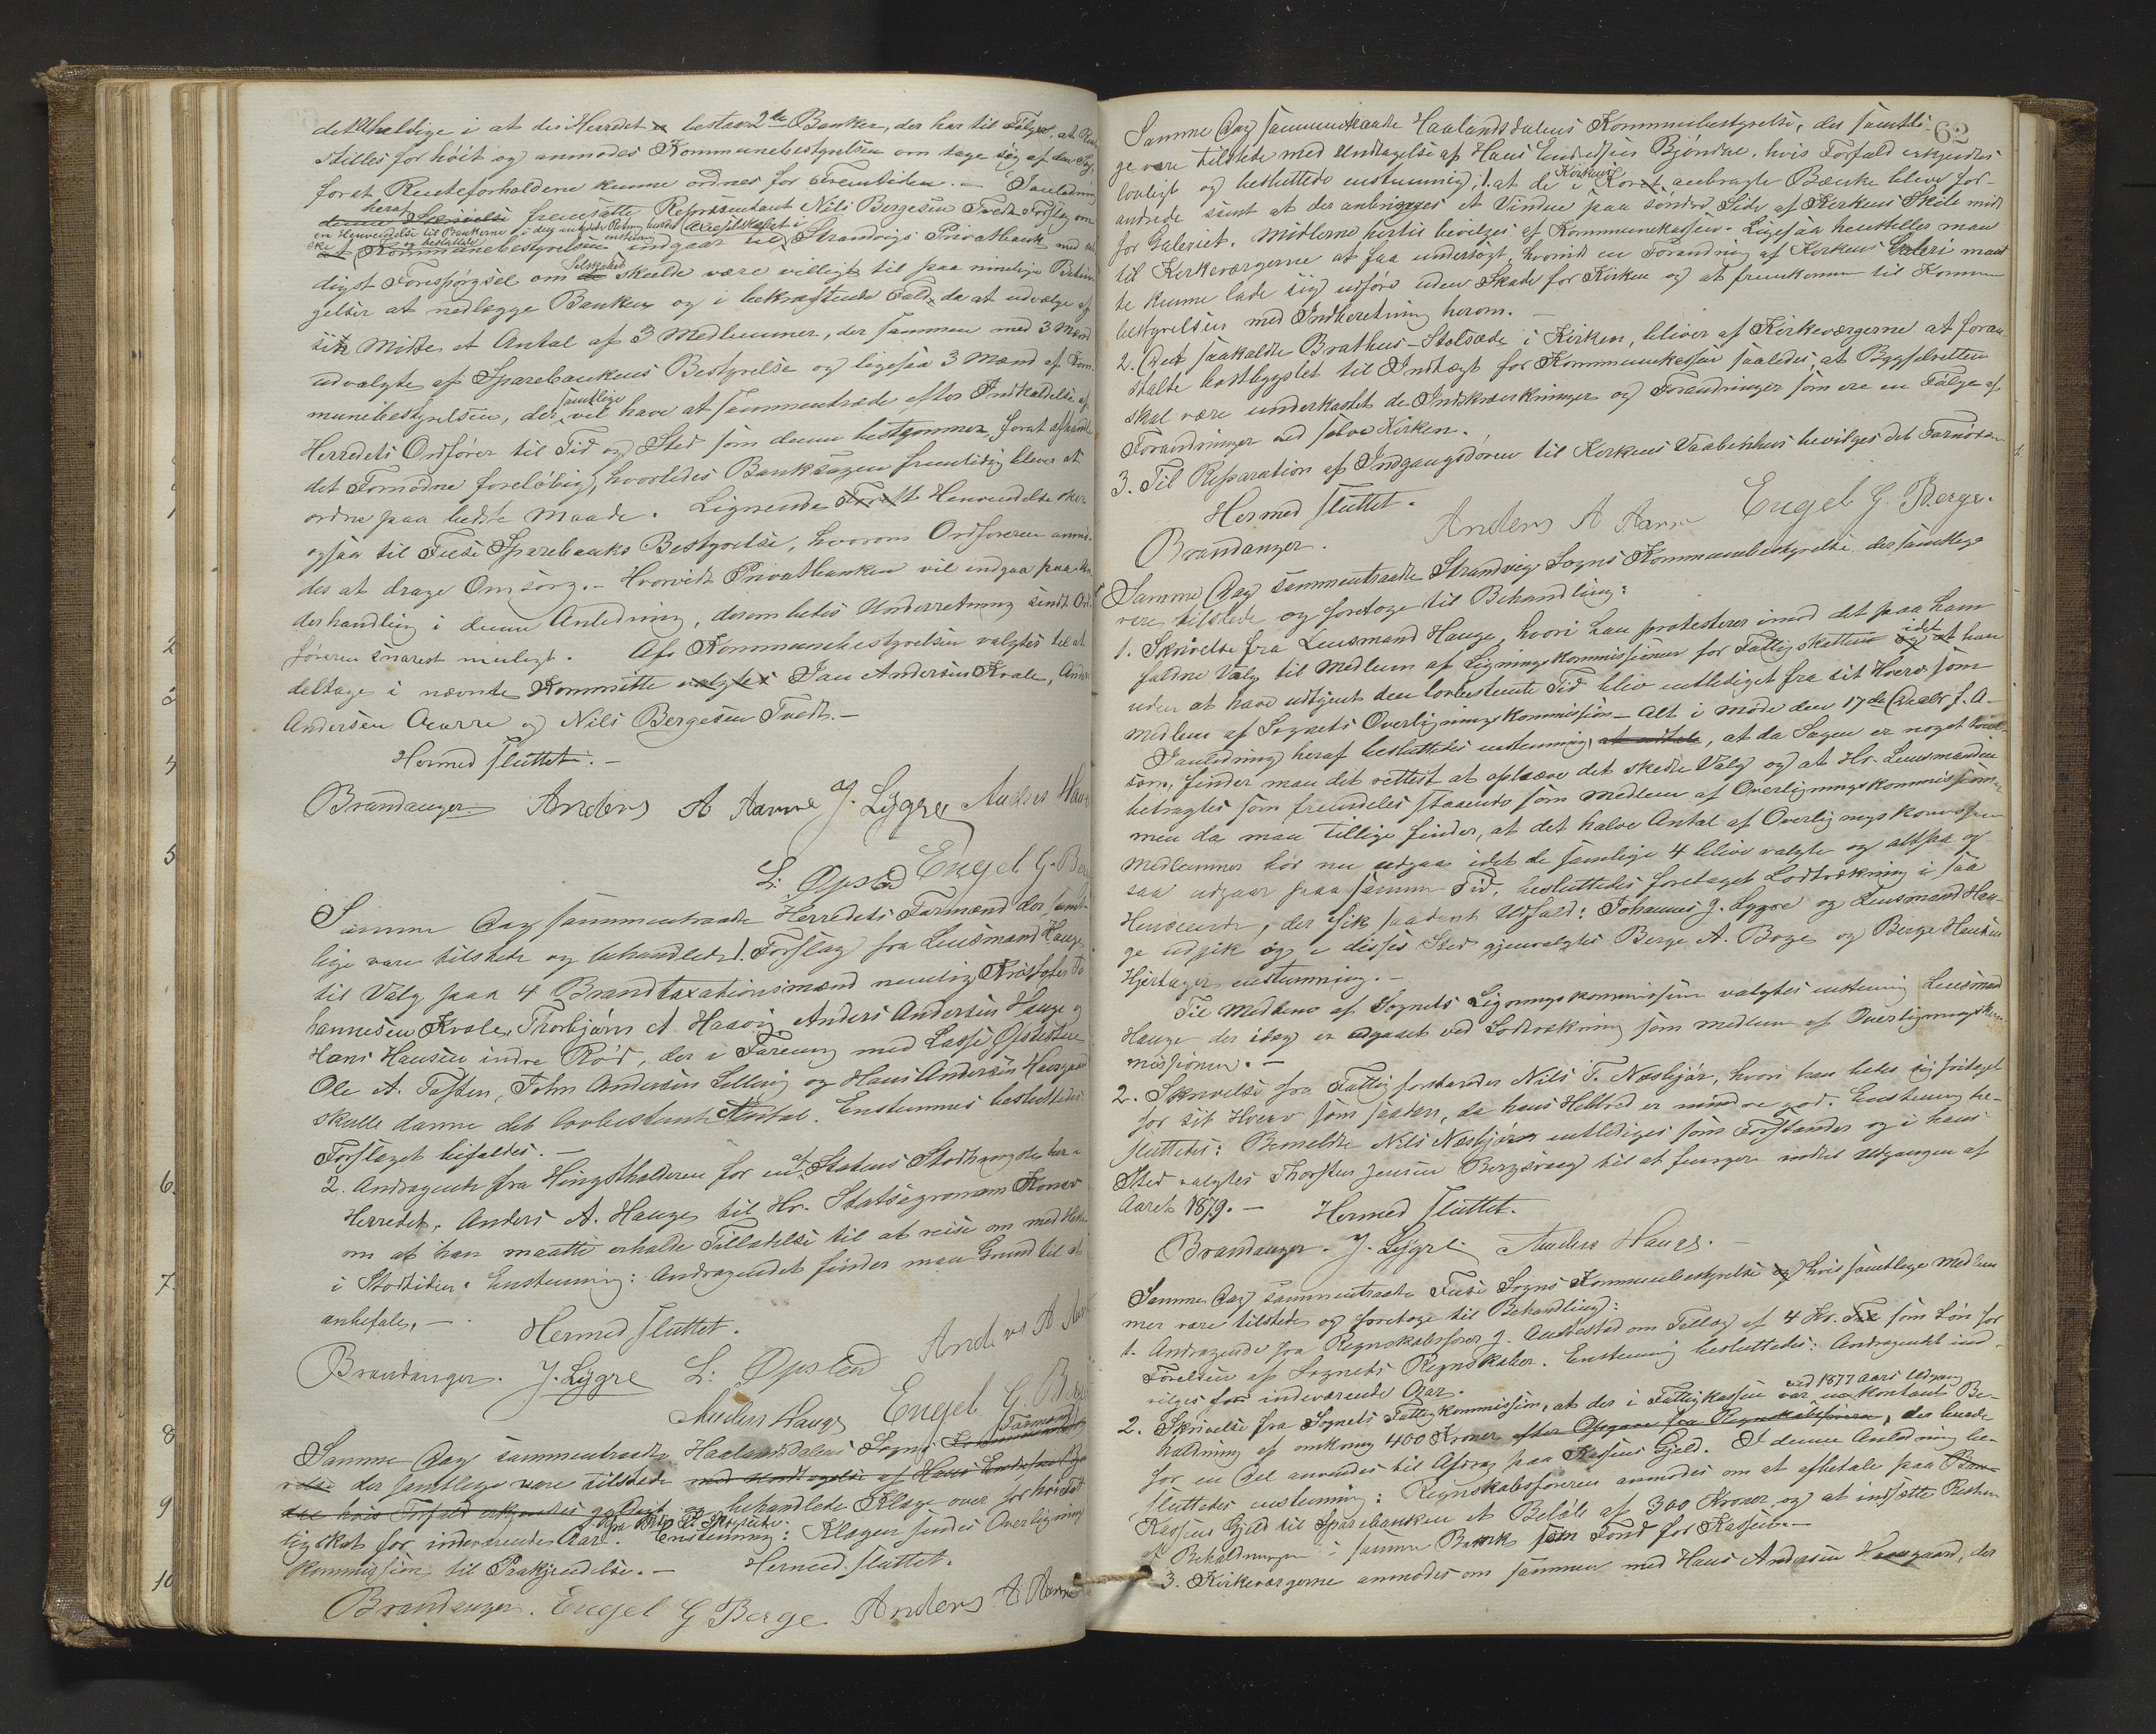 det uheldige i at der i Herredet bestaar 2de Banker, der har til Følger, at
stilles for høit og anmodes Kommunebestyrelsen om tage sig af den Sag,
forat Renteforholdene kunne ordnes for Fremtiden. — I Anledning
heraf fremsatte Repræsentant Nils Bergesen Tvedt Forslag om
en Henvendelse til Bankerne i deg antydede Retning
at Kommunebestyrelsen indgaar til Strandvigs Privatbank med
digst Forespørgsel om Selskabet skulde være villigt til paa rimelige Betin
gelser at nedlægge Banken og i bekræftende Fald da at udvælge af
sin Midte et Antal af 3 Medlemmer, der sammen med 3 Mænd
udvalgte af Sparebankens Bestyrelse og ligesaa 3 Mænd af Kom-
munebestyrelsen, der samtlige vil have at sammentræde efter Indkaldelse af
Herredets Ordfører til Tid og Sted som denne bestemmer, forat afhandle
det Fornødne foreløbig, hvorledes Banksagen fremtidig bliver at
ordne paa bedste Maade. Lignende Henvendelse sker
ogsaa til Fuse Sparebanks Bestyrelse, hvorom Ordføreren anmo-
des at drage Omsorg. — Hvorvidt Privatbanken vil indgaa paa Un
derhandling i denne Anledning, derom bedes Underretning sendt Ord
føreren snarest muligt. Af Kommunebestyrelsen valgtes til at
deltage i nævnte Kommitte Jan Andersen Kvale, Anders
Andersen Aarre og Nils Bergesen Tvedt. —
Hermed sluttet. —
Brandanger Anders A Aarre J. Lygre Anders Haug
L. Opsed Engel G. Ber
Samme Dag sammentraadte Herredets Formænd der samt-
lige vare tilstede og behandlede 1. Forslag fra Lensmand Hauge
til Valg paa 4 Brandtaxationsmænd nemlig Kristofer Jo
hannesen Kvale, Thorbjørn A. Haavig, Anders Andersen Hauge og
Hans Hansen indre Rød, der i Forening med Lasse Opsedsten
Ole A. Tasten, John Andersen Lelling og Hans Andersen Haugaard
skulle danne det lovbestemte Antal. Enstemmes besluttedes
Forslaget bifaldes. —
2. Andragende fra Hingstholderen for en af Statens Stodhingster her i
Herredet, Anders A. Hauge til Hr. Statsagronom Konow
om at han maatte erholde Tilladelse til at reise om med Hesten
i Stodtiden. Enstemmig: Andragendet finder man Grund til at
anbefale. —
Hermed sluttet.
Brandanger. J. Lygre L. Opsted Anders A Aar
Anders Hauge Engel G. Berge
Samme Dag sammentraadte Haalandsdalens Sogns Formænd
der samtlige vare tilstede med Undtagelse af Hans Endresen
hvis Forfald erkjendtes gyldigt og behandlede Klage over forhøiet
tigskat for indeværende Aar. Enstemmig: Klagen sendes Overlignings
kommission til Paakjendelse. — Hermed sluttet.
Brandanger. Engel G Berge Anders A Aarre
62
Samme Dag sammentraadte Haalandsdalens Kommunebestyrelse, der samtli-
ge vare tilstede med Undtagelse af Hans Endresen Bjøndne, hvis Forfald erkjendtes
lovligt og besluttede enstemmig: 1. at de i Kirkens Kor anbragte Bænke blive for-
andrede samt at der anbringes et Vindue paa søndre Side af Kirkens Skib midt
for Galeriet. Midlerne hertil bevilges af Kommunekassen. Ligesaa henstilles man
til Kirkeværgerne at faa undersøgt, hvorvidt en Forandring af Kirkens Galeri maat
te kunne lade sig udføre uden Skade for Kirken og at fremkomme til Kommune
bestyrelsen med Indberetning herom. —
2. Det saakaldte Brathus-Stolsæde i Kirken, bliver af Kirkeværgerne at foran
stalte bortbygslet til Indtægt for Kommunekassen saaledes, at Bygselretten
skal være underkastet de Indskrænkninger og Forandringer som ere en Følge af
Forandringer ved selve Kirken.
3. Til Reparation af Indgangsdøren til Kirkens Vaabenhus bevilges det Fornødne
Hermed sluttet.
Brandanger. Anders A Aarre Engel G. Berge.
Samme Dag sammentraadte Strandvigs Sogns Kommunebestyrelse der samtlige
vare tilstede og foretoge til Behandling:
1. Skrivelse fra Lensmand Hauge, hvori han protesterer imod det paa ham
faldne Valg til Medlem af Ligningskommissionen for Fattigskatten idet han
uden at have udtjent den lovbestemte Tid blev entlediget fra sit Hverv som
Medlem af Sognets Overligningskommission — Alt i Møde den 17de Decebr f. A.
I Anledning heraf besluttedes enstemmig, at da Sagen er noget tvivl-
som, finder man det rettest at ophæve det skedte Valg og at Hr. Lensmanden
betragtes som fremdeles staaende som Medlem af Overligningskommissionen
men da man tillige finder, at det halve Antal af Overligningskommissionens
Medlemmer bør nu udgaa idet de samtlige 4 bleve valgte og altsaa og
saa udgaar paa samme Tid, besluttedes foretaget Lodtrækning i saa
Henseende, der fik saadant Udfald: Johannes J. Lygre og Lensmand Hau-
ge udgik og i disses Sted gjenvalgtes Berge A. Boge og Berge Hansen
Hjertager enstemmig. —
Til Medlem af Sognets Ligningskommission valgtes enstemmig Lensmand
Hauge der idag er udgaaet ved Lodtrækning som Medlem af Overligningskom
missionen. —
2. Skrivelse fra Fattigforstander Nils T. Nesbjør, hvori han beder sig fritaget
for sit Hverv som saadan, da hans Helbred er mindre god. Enstemmig be-
sluttedes: Bemeldte Nils Nesbjør entlediges som Forstander og i hans
Sted valgtes Thorsten Jensen Bergsvaag til at fungere indtil Udgangen af
Aaret 1879. — Hermed sluttet.
Brandanger. J. Lygre Anders Hauge. —
Samme Dag sammentraadte Fuse Sogns Kommunebestyrelse hvis samtlige Medlem
mer vare tilstede og foretoge til Behandling:
1. Andragende fra Regnskabsfører J. Andvestad om Tillæg af 4 Kr. som Løn for
Førelsen af Sognets Regnskaber. Enstemmig besluttedes: Andragendet ind-
vilges for indeværende Aar.
2. Skrivelse fra Sognets Fattigkommission, at der i Fattigkassen ved 1877 Aars Udgang var en kontant Be-
holdning af omkring 400 Kroner efter Opgave fra Regnskabsføreren, der burde
for en Del anvendes til Afdrag paa Kassens Gjeld. I denne Anledning be-
sluttedes enstemmig: Regnskabsføreren anmodes om at afbetale paa
Kassens Gjeld til Sparebanken et Beløb af 300 Kroner og at indsætte Resten
af Beholdningen i samme Bank som Fond for Kassen. —
3. Kirkeværgerne anmodes om sammen med Hans Andersen Haugaard, der